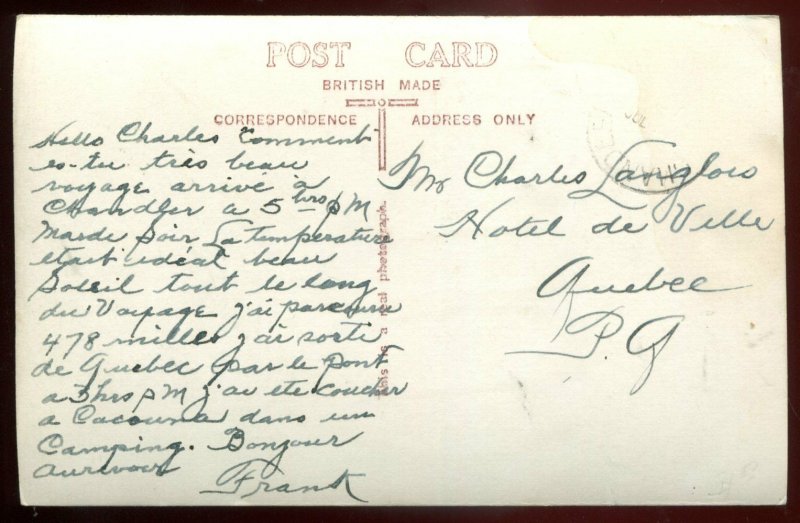 POST CARD
BRITISH MADE
CORRESPONDENCE
ADDRESS ONLY
Hello Charles Comment
es-tu très beau
voyage arrivé à
Chandler a 5 hrs PM
Mardi soir La temperature
etait idéal beau
Soleil tout le long
du Voyage j'ai parcouru
478 milles j'ai sorti
de Quebec par le pont
a 3 hrs PM j'ai ete coucher
a Cacouna dans un
Camping. Bonjour
aurevoir
Frank
This is a real photograph.
Mr Charles Langlois
Hotel de Ville
Quebec
P. Q